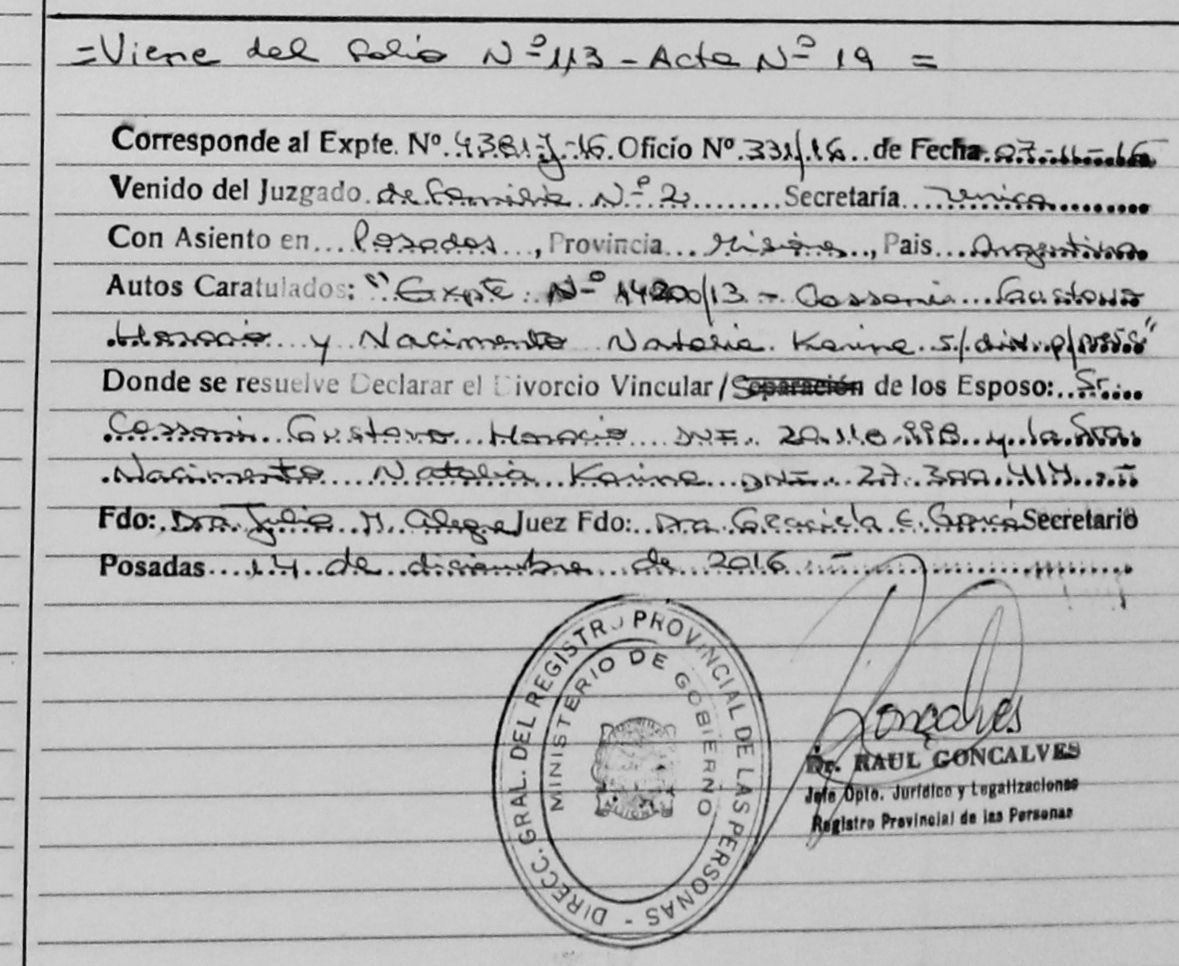 =Viene del folio Nº 113 - Acta Nº 19 =
Corresponde al Expte. Nº 4381-J-16. Oficio Nº 331/16 de Fecha 07-11-16
Venido del Juzgado de Familia Nº 2 Secretaría única
Con Asiento en Posadas, Provincia Misiones, Pais Argentina
Autos Caratulados: "Expte. Nº 14200/13 - Cassoni Gustavo
Horacio y Nacimento Natalia Karina s/ div. p/
Donde se resuelve Declarar el Divorcio Vincular / Separación de los Esposo: Sr.
Gustavo Horacio DNI. y la Sra.
Nacimento Natalia Karina DNI
Fdo: Dra. Julia M. Alegre Juez Fdo: Dra. Graciela E. Secretario
Posadas 14 de diciembre de 2016
DIRECC. GRAL. DEL REGISTRO PROVINCIAL DE LAS PERSONAS -
MINISTERIO DE GOBIERNO
Gonçalves
Dr. RAUL GONCALVES
Jefe Dpto. Jurídico y Legalizaciones
Registro Provincial de las Personas